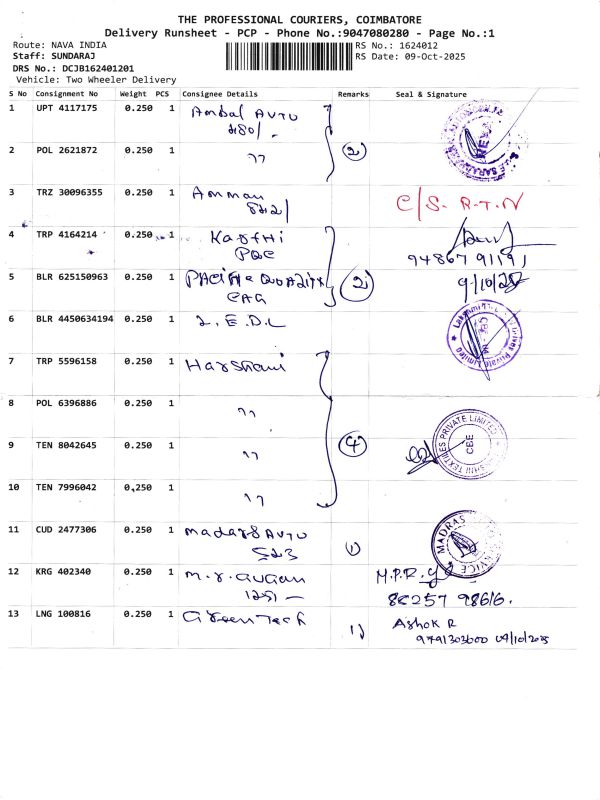 THE PROFESSIONAL COURIERS, COIMBATORE
Delivery Runsheet - PCP - Phone No.:9047080280 - Page No.:1
Route: NAVA INDIA
RS No.: 1624012
Staff: SUNDARAJ
RS Date: 09-Oct-2025
DRS No.: DCJB162401201
Vehicle: Two Wheeler Delivery
S No Consignment No Weight PCS Consignee Details Remarks Seal & Signature
1 UPT 4117175 0.250 1 Ambal AUTO
2 POL 2621872 0.250 1 " (2)
3 TRZ 30096355 0.250 1 Amman C/S. R.T.N
4 TRP 4164214 0.250 1
PQC 94867 91191
5 BLR 625150963 0.250 1 PACIFIC QUALITY (2) 9/10/25
6 BLR 4450634194 0.250 1 L.E.D.L
7 TRP 5596158 0.250 1 Harshani
8 POL 6396886 0.250 1 "
9 TEN 8042645 0.250 1 " (4)
TEXTILES PRIVATE LIMITED
CBE
10 TEN 7996042 0.250 1 "
11 CUD 2477306 0.250 1 Madras AUTO (1)
MADRAS SERVICE
12 KRG 402340 0.250 1 M.P.R.
1251 - 80257 98616.
13 LNG 100816 0.250 1 Green Tech 1) Ashok R
9791303600 09/10/2025